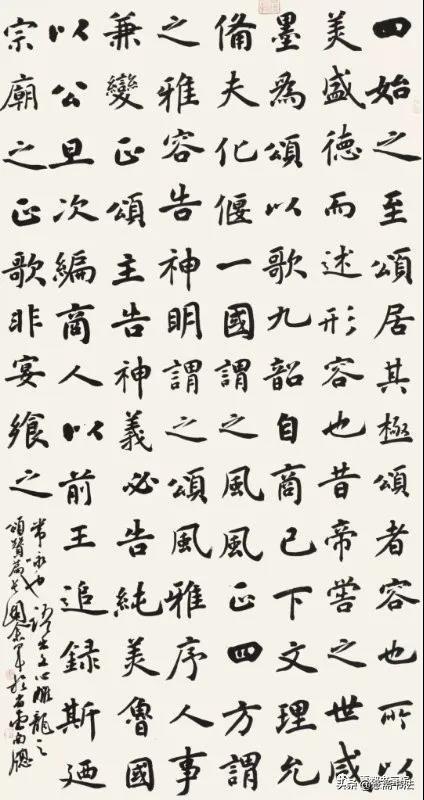 四始之至頌居其極頌者容也所以
美盛德而述形容也昔帝嚳之世咸
墨為頌以歌九韶自商已下文理允
備夫化偃一國謂之風風正四方謂
之雅容告神明謂之頌風雅序人事
兼變正頌主告神義必告純美魯國
以公旦次編商人以前王追錄斯迺
宗廟之正歌非宴飨之
常詠也 錄文心雕龍之
頌贊篇